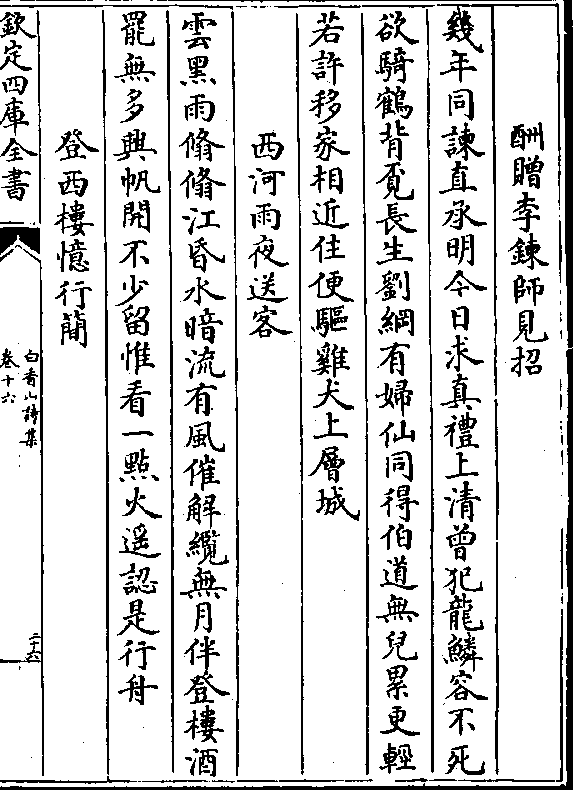 酬贈李鍊師見招
幾年同諫直承明今日求真禮上清曾犯龍鱗容不死
欲騎鶴背覔長生劉綱有婦仙同得伯道無兒累更輕
若許移家相近住便驅雞犬上層城
西河雨夜送客
雲黑雨翛翛江昏水暗流有風催解纜無月伴登樓酒
罷無多興帆開不少留惟看一點火遥認是行舟
登西樓憶行簡
欽定四庫全書
白香山詩集
卷十六
二十六